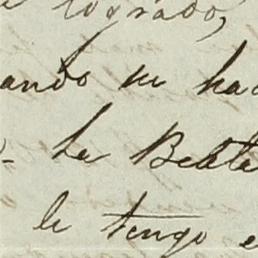 logrado,
ando se ha
la Beate
le tengo e